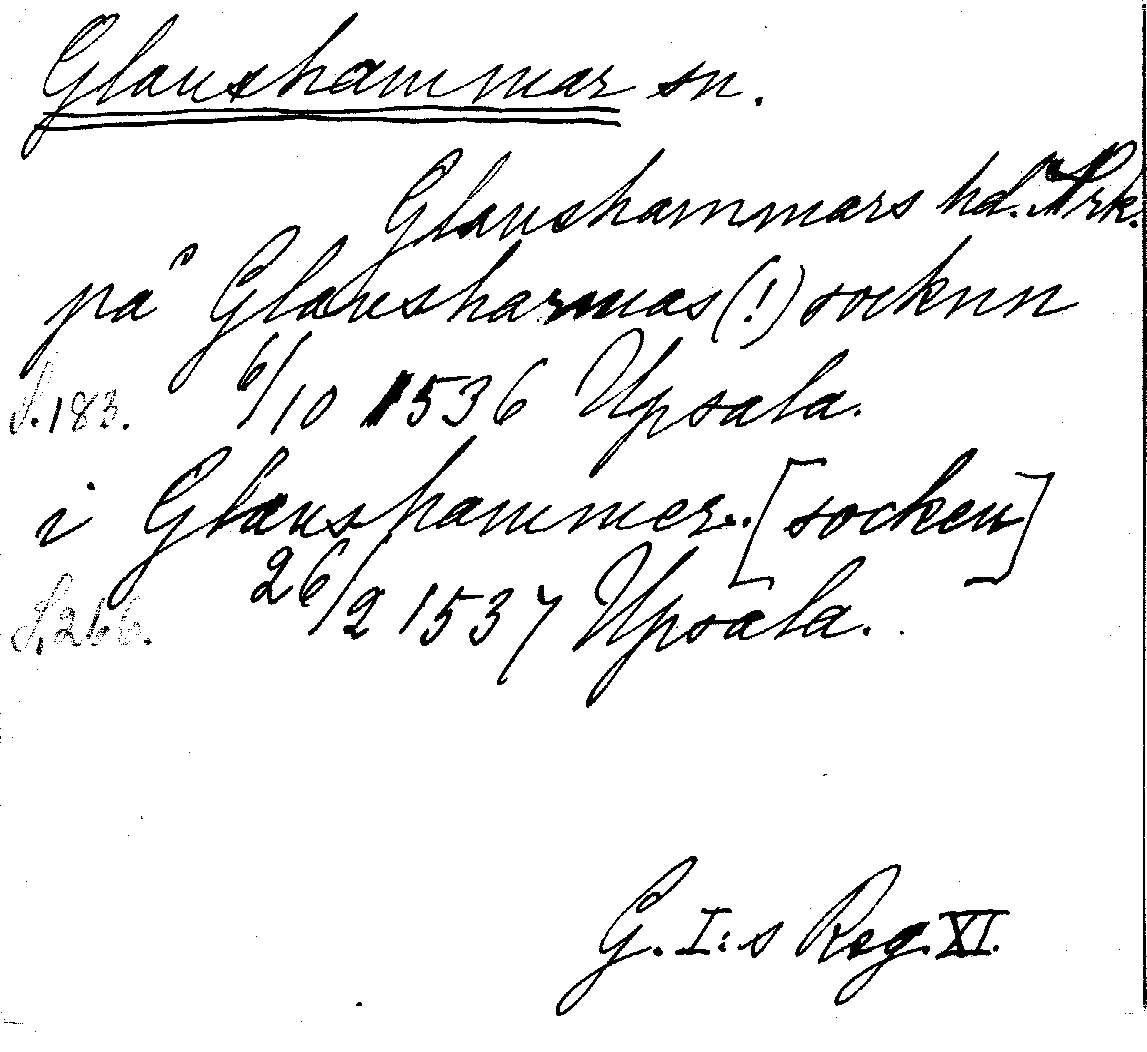 Glanshammar sn.
Glanshammars hd. Nrk.
på Glansharmas (!) socknn
S. 183. 6/10 1536 Upsala.
i Glanshammer.. [socken]
S. 266. 26/2 1537 Upsala.
G. I:s Reg. XI.